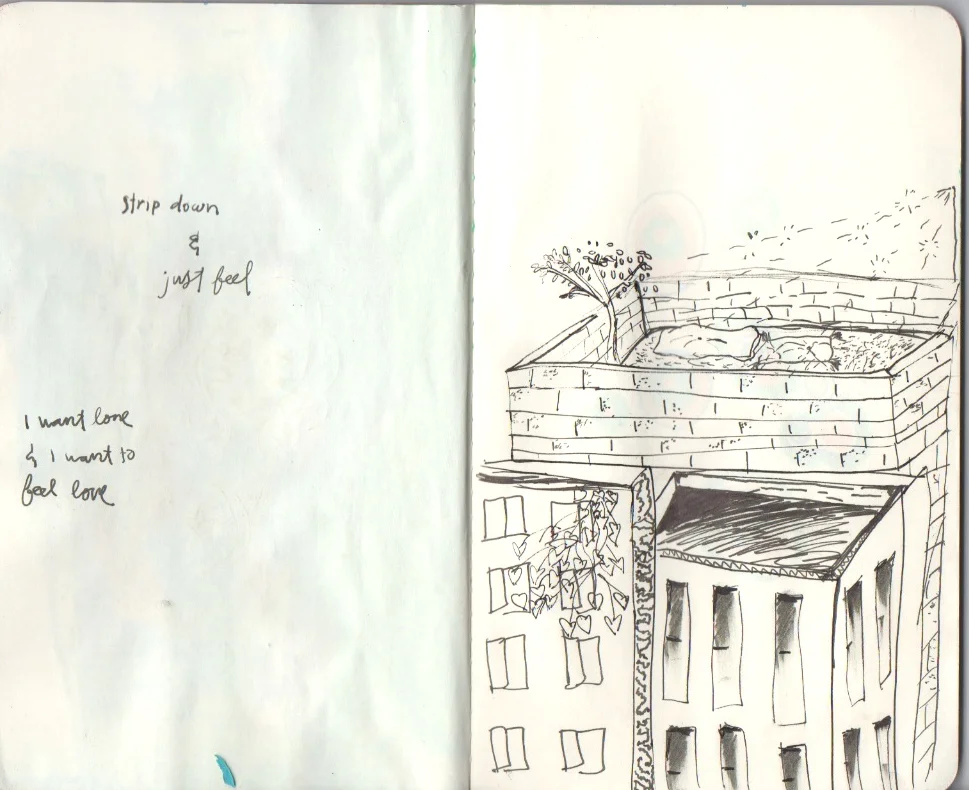 strip down
&
just feel
I want love
& I want to
feel love